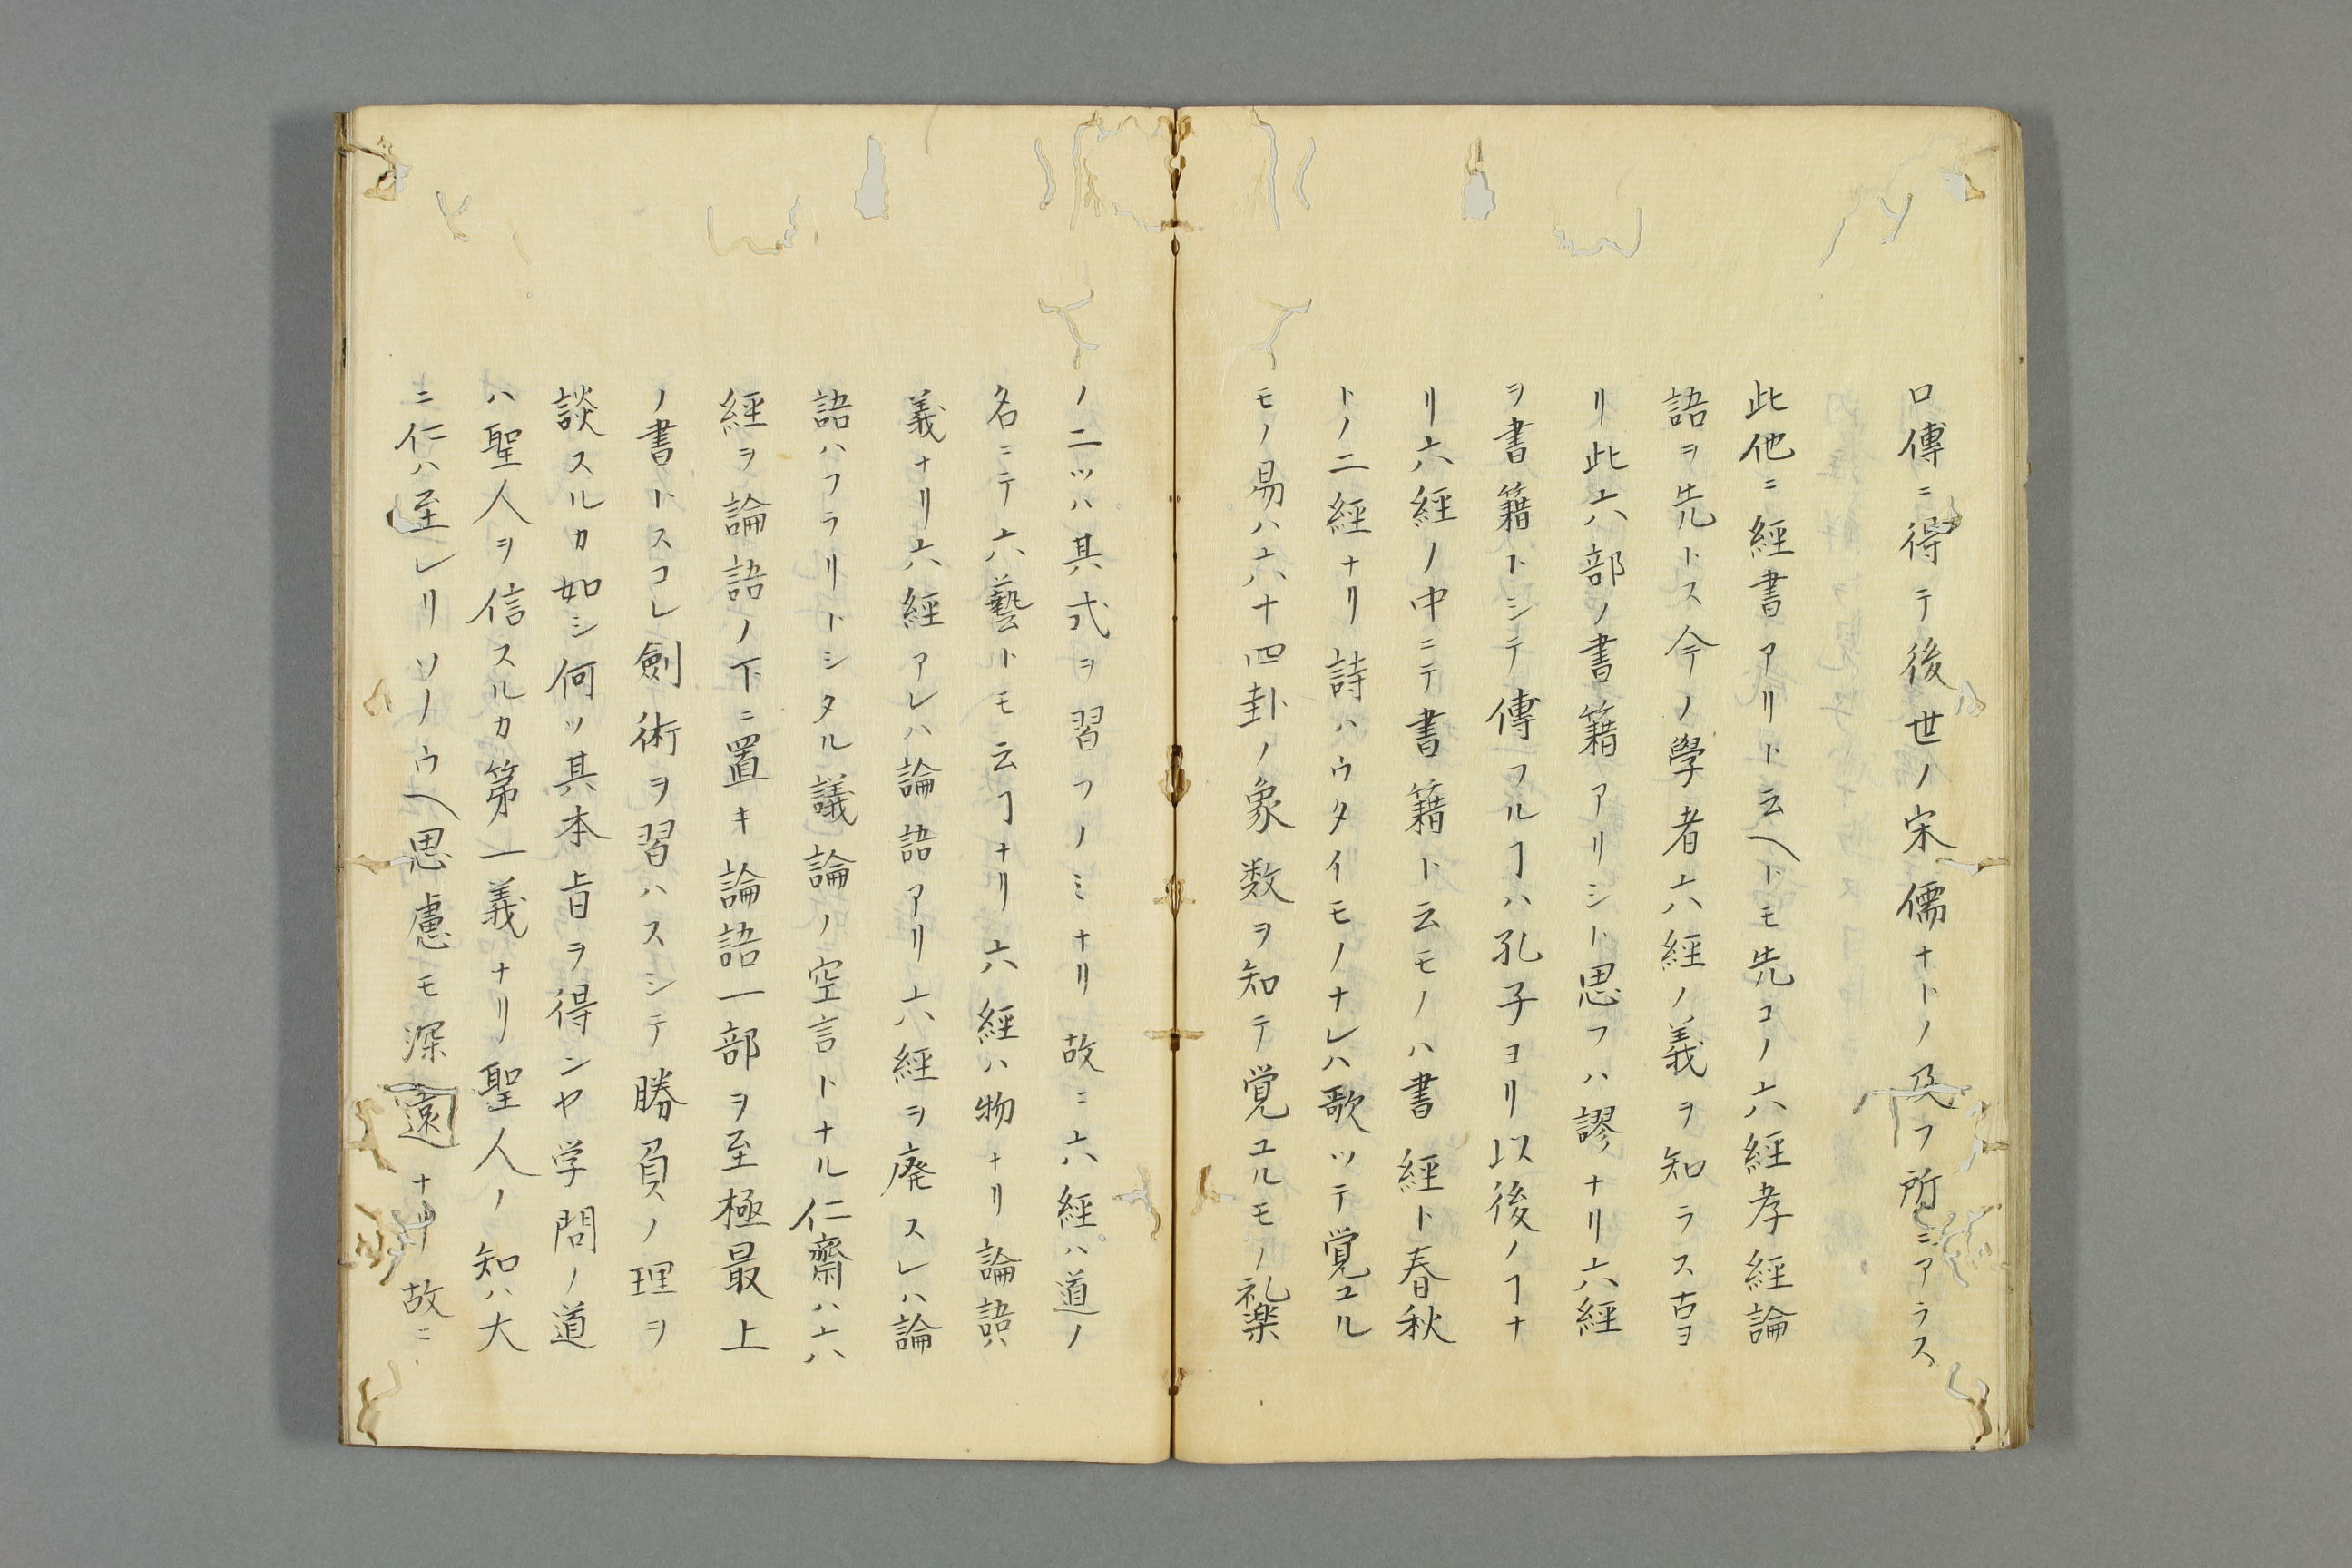 口傳ニ得テ後世ノ宋儒ナトノ及フ所ニアラス
此他ニ經書アリト云ヘトモ先コノ六經孝經論
語ヲ先トス今ノ學者六經ノ義ヲ知ラス古ヨ
リ此六部ノ書籍アリシト思フハ謬ナリ六經
ヲ書籍トシテ傳フルヿハ孔子ヨリ以後ノヿナ
リ六經ノ中ニテ書籍ト云モノハ書經ト春秋
トノ二經ナリ詩ハウタイモノナレハ歌ツテ覚ユル
モノ易ハ六十四卦ノ象数ヲ知テ覚ユルモノ礼楽
ノ二ツハ其式ヲ習フノミナリ故ニ六經ハ道ノ
名ニテ六藝トモ云ヿナリ六經ハ物ナリ論語ハ
義ナリ六經アレハ論語アリ六經ヲ廃スレハ論
語ハフラリトシタル議論ノ空言トナル仁齋ハ六
經ヲ論語ノ下ニ置キ論語一部ヲ至極最上
ノ書トスコレ劍術ヲ習ハスシテ勝負ノ理ヲ
談スルカ如シ何ソ其本旨ヲ得ンヤ学問ノ道
ハ聖人ヲ信スルカ第一義ナリ聖人ノ知ハ大
ニ仁ハ至レリソノウヘ思慮モ深遠ナリ故ニ